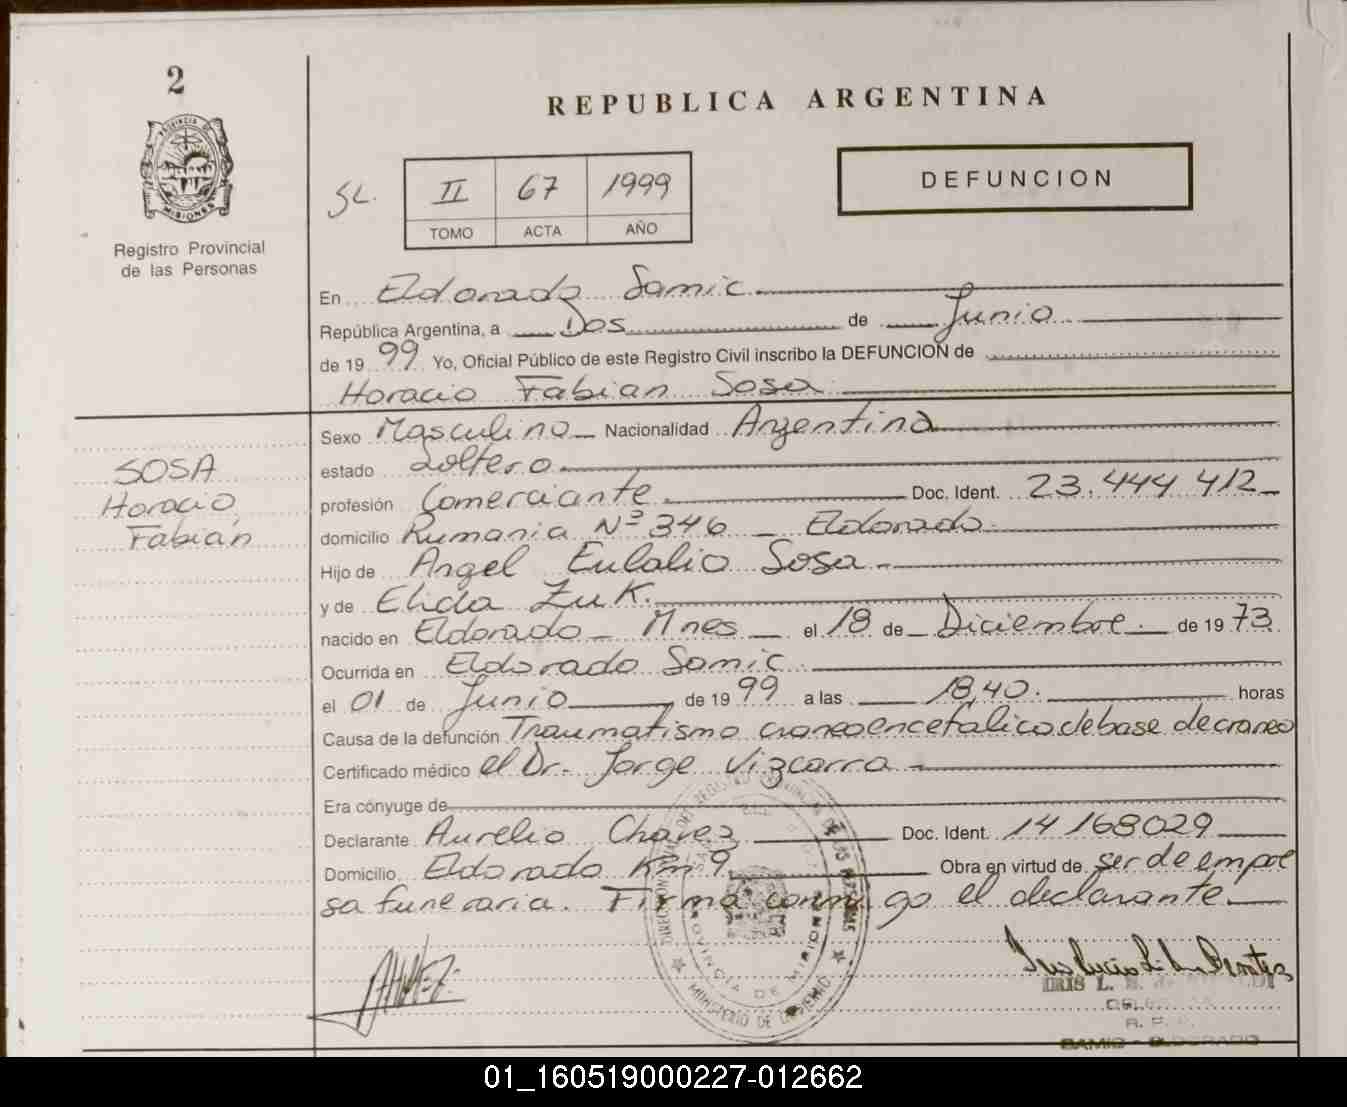 2
REPUBLICA ARGENTINA
PROVINCIA DE
MISIONES
Registro Provincial
de las Personas
SL.
II 67 1999
TOMO ACTA AÑO
DEFUNCION
En Eldorado Samic
República Argentina, a Dos de Junio
de 1999 Yo, Oficial Público de este Registro Civil inscribo la DEFUNCION de
Horacio Fabian Sosa
SOSA
Horacio
Fabián
Sexo Masculino Nacionalidad Argentina
estado Soltero
profesión Comerciante Doc. Ident. 23.444 412
domicilio Rumania Nº 346 - Eldorado
Hijo de Angel Eulalio Sosa
y de Elida Zuk.
nacido en Eldorado - Mnes el 18 de Diciembre de 1973
Ocurrida en Eldorado Samic
el 01 de Junio de 1999 a las 18,40. horas
Causa de la defunción Traumatismo craneoencefalico de base de craneo
Certificado médico el Dr. Jorge Vizcarra
Era cónyuge de
Declarante Aurelio Chavez Doc. Ident. 14 168029
Domicilio Eldorado Km 9 Obra en virtud de ser de empre
sa funeraria. Firma conmigo el declarante
PROVINCIA DE MISIONES
MINISTERIO DE GOBIERNO
IRIS L.
SAMIC - ELDORADO
01_160519000227-012662